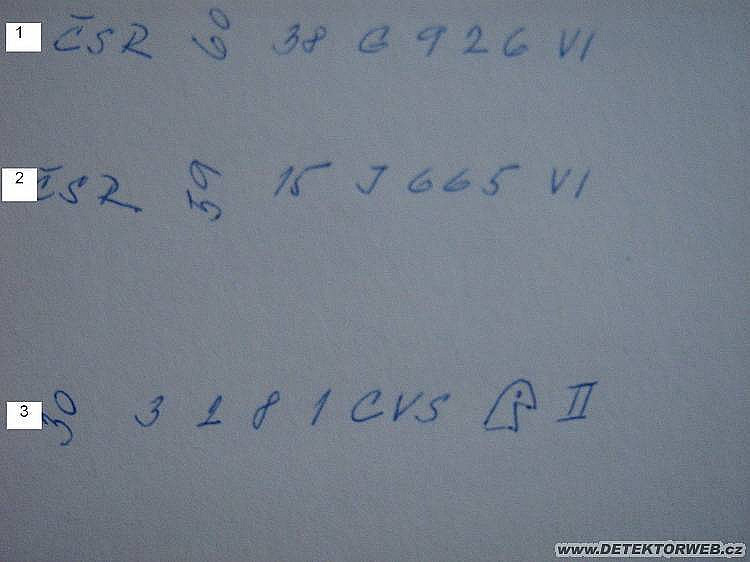 1 ČSR 60 38 G 926 VI
2 ČSR 59 15 J 665 VI
3 30 3 2 8 1 CVS II
www.DETEKTORWEB.cz